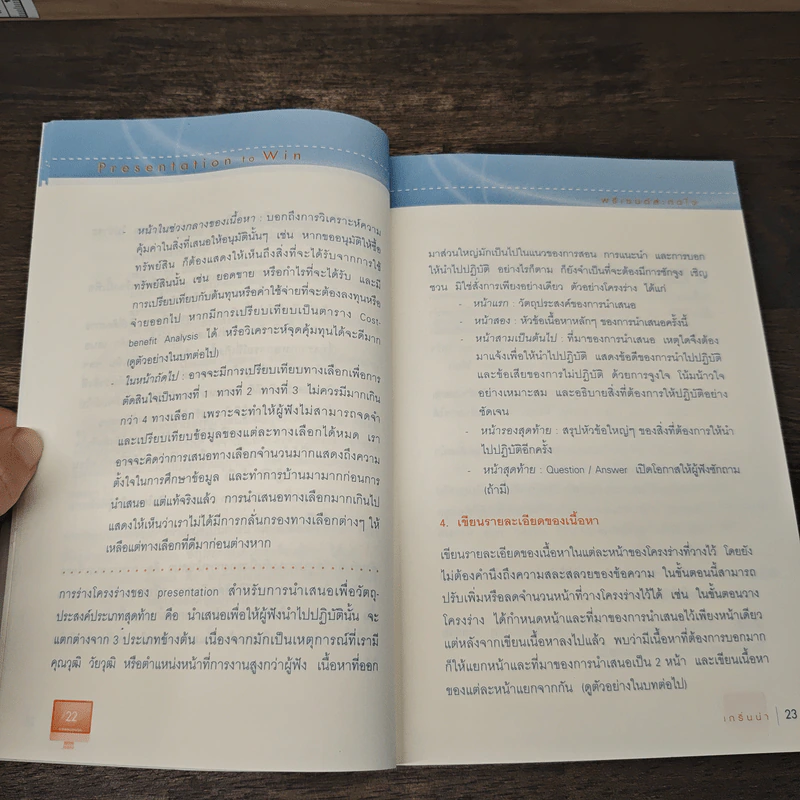 Presentation to Win
- หน้าในช่วงกลางของเนื้อหา : บอกถึงการวิเคราะห์ความ
คุ้มค่าในสิ่งที่เสนอให้อนุมัตินั้นๆ เช่น หากขออนุมัติให้ซื้อ
ทรัพย์สิน ก็ต้องแสดงให้เห็นถึงสิ่งที่จะได้รับจากการใช้
ทรัพย์สินนั้น เช่น ยอดขาย หรือกำไรที่จะได้รับ และมี
การเปรียบเทียบกับต้นทุนหรือค่าใช้จ่ายที่จะต้องลงทุนหรือ
จ่ายออกไป หากมีการเปรียบเทียบเป็นตาราง Cost-
benefit Analysis ได้ หรือวิเคราะห์จุดคุ้มทุนได้จะดีมาก
(ดูตัวอย่างในบทต่อไป)
- ในหน้าถัดไป : อาจจะมีการเปรียบเทียบทางเลือกเพื่อการ
ตัดสินใจเป็นทางที่ 1 ทางที่ 2 ทางที่ 3 ไม่ควรมีมากเกิน
กว่า 4 ทางเลือก เพราะจะทำให้ผู้ฟังไม่สามารถจดจำ
และเปรียบเทียบข้อมูลของแต่ละทางเลือกได้หมด เรา
อาจจะคิดว่าการเสนอทางเลือกจำนวนมากแสดงถึงความ
ตั้งใจในการศึกษาข้อมูล และทำการบ้านมามากก่อนการ
นำเสนอ แต่แท้จริงแล้ว การนำเสนอทางเลือกมากเกินไป
แสดงให้เห็นว่าเราไม่ได้มีการกลั่นกรองทางเลือกต่างๆ ให้
เหลือแต่ทางเลือกที่ดีมาก่อนต่างหาก
การร่างโครงร่างของ presentation สำหรับการนำเสนอเพื่อวัตถุ-
ประสงค์ประเภทสุดท้าย คือ นำเสนอเพื่อให้ผู้ฟังนำไปปฏิบัตินั้น จะ
แตกต่างจาก 3 ประเภทข้างต้น เนื่องจากมักเป็นเหตุการณ์ที่เรามี
คุณวุฒิ วัยวุฒิ หรือตำแหน่งหน้าที่การงานสูงกว่าผู้ฟัง เนื้อหาที่ออก
22
มาส่วนใหญ่มักเป็นไปในแนวของการสอน การแนะนำ และการบอก
ให้นำไปปฏิบัติ อย่างไรก็ตาม ก็ยังจำเป็นที่จะต้องมีการชักจูง เชิญ
ชวน มิใช่สั่งการเพียงอย่างเดียว ตัวอย่างโครงร่าง ได้แก่
- หน้าแรก : วัตถุประสงค์ของการนำเสนอ
- หน้าสอง : หัวข้อเนื้อหาหลักๆ ของการนำเสนอครั้งนี้
- หน้าสามเป็นต้นไป : ที่มาของการนำเสนอ เหตุใดจึงต้อง
มาแจ้งเพื่อให้นำไปปฏิบัติ แสดงข้อดีของการนำไปปฏิบัติ
และข้อเสียของการไม่ปฏิบัติ ด้วยการจูงใจ โน้มน้าวใจ
อย่างเหมาะสม และอธิบายสิ่งที่ต้องการให้ปฏิบัติอย่าง
ชัดเจน
- หน้ารองสุดท้าย : สรุปหัวข้อใหญ่ๆ ของสิ่งที่ต้องการให้นำ
ไปปฏิบัติอีกครั้ง
- หน้าสุดท้าย : Question / Answer เปิดโอกาสให้ผู้ฟังซักถาม
(ถ้ามี)
4. เขียนรายละเอียดของเนื้อหา
เขียนรายละเอียดของเนื้อหาในแต่ละหน้าของโครงร่างที่วางไว้ โดยยัง
ไม่ต้องคำนึงถึงความสละสลวยของข้อความ ในขั้นตอนนี้สามารถ
ปรับเพิ่มหรือลดจำนวนหน้าที่วางโครงร่างไว้ได้ เช่น ในขั้นตอนวาง
โครงร่าง ได้กำหนดหน้าและที่มาของการนำเสนอไว้เพียงหน้าเดียว
แต่หลังจากเขียนเนื้อหาลงไปแล้ว พบว่ามีเนื้อหาที่ต้องการบอกมาก
ก็ให้แยกหน้าและที่มาของการนำเสนอเป็น 2 หน้า และเขียนเนื้อหา
ของแต่ละหน้าแยกจากกัน (ดูตัวอย่างในบทต่อไป)
เกริ่นนำ 23